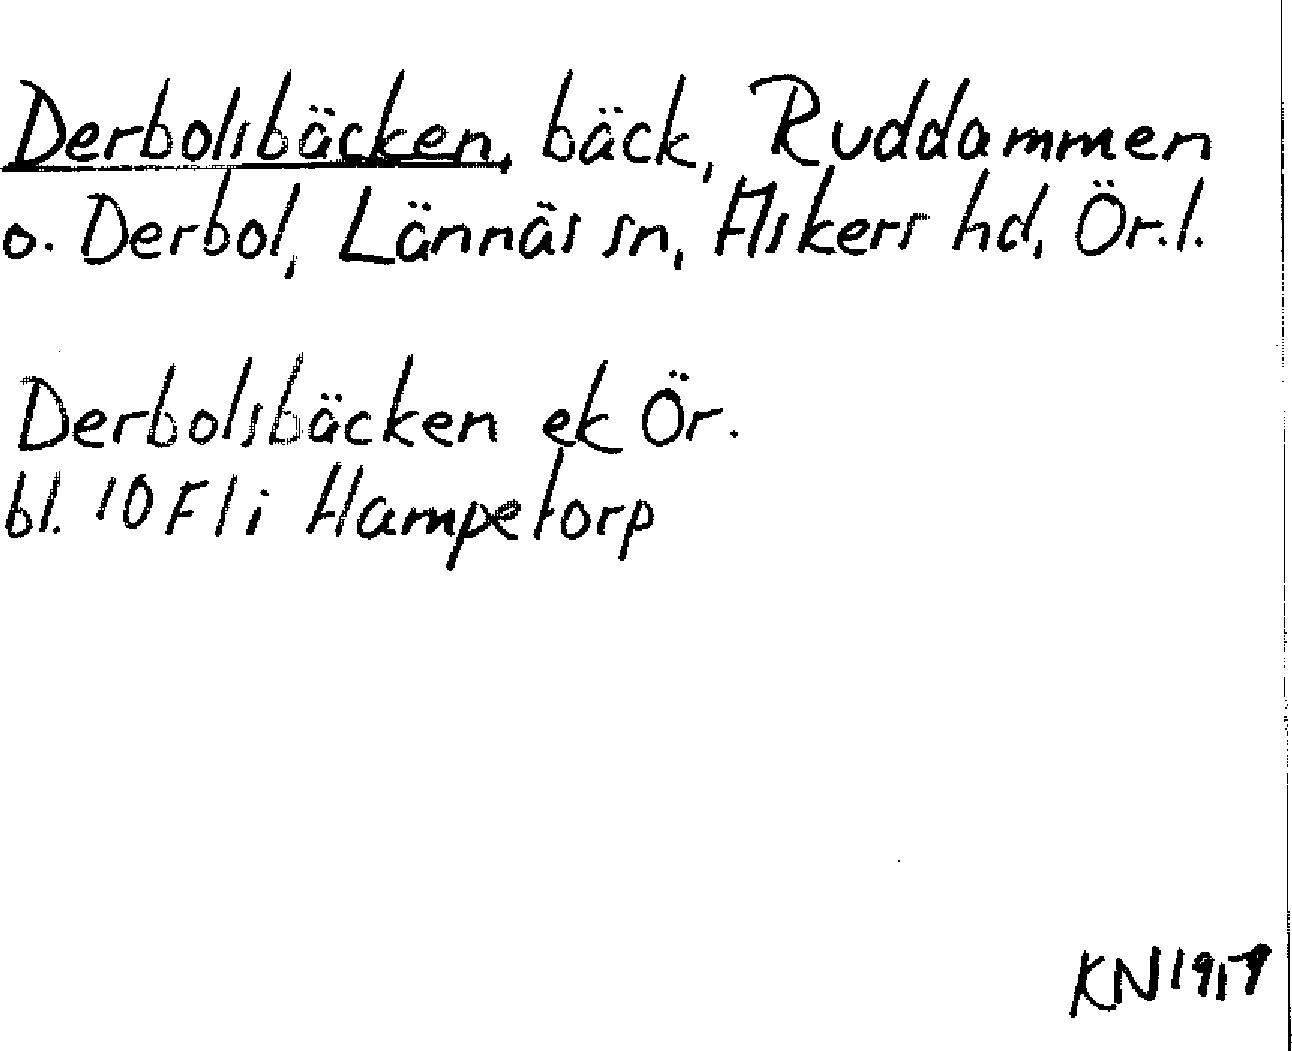 Derbolsbäcken, bäck, Ruddammen
o. Derbol, Lännäs sn, Askers hd, Ör.l.
Derbolsbäcken ek Ör.
bl. 10 F 1 i Hampetorp